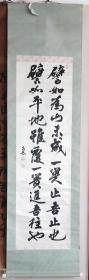 譬如為山未成一簣止吾止也
譬如平地雖覆一簣進吾往也